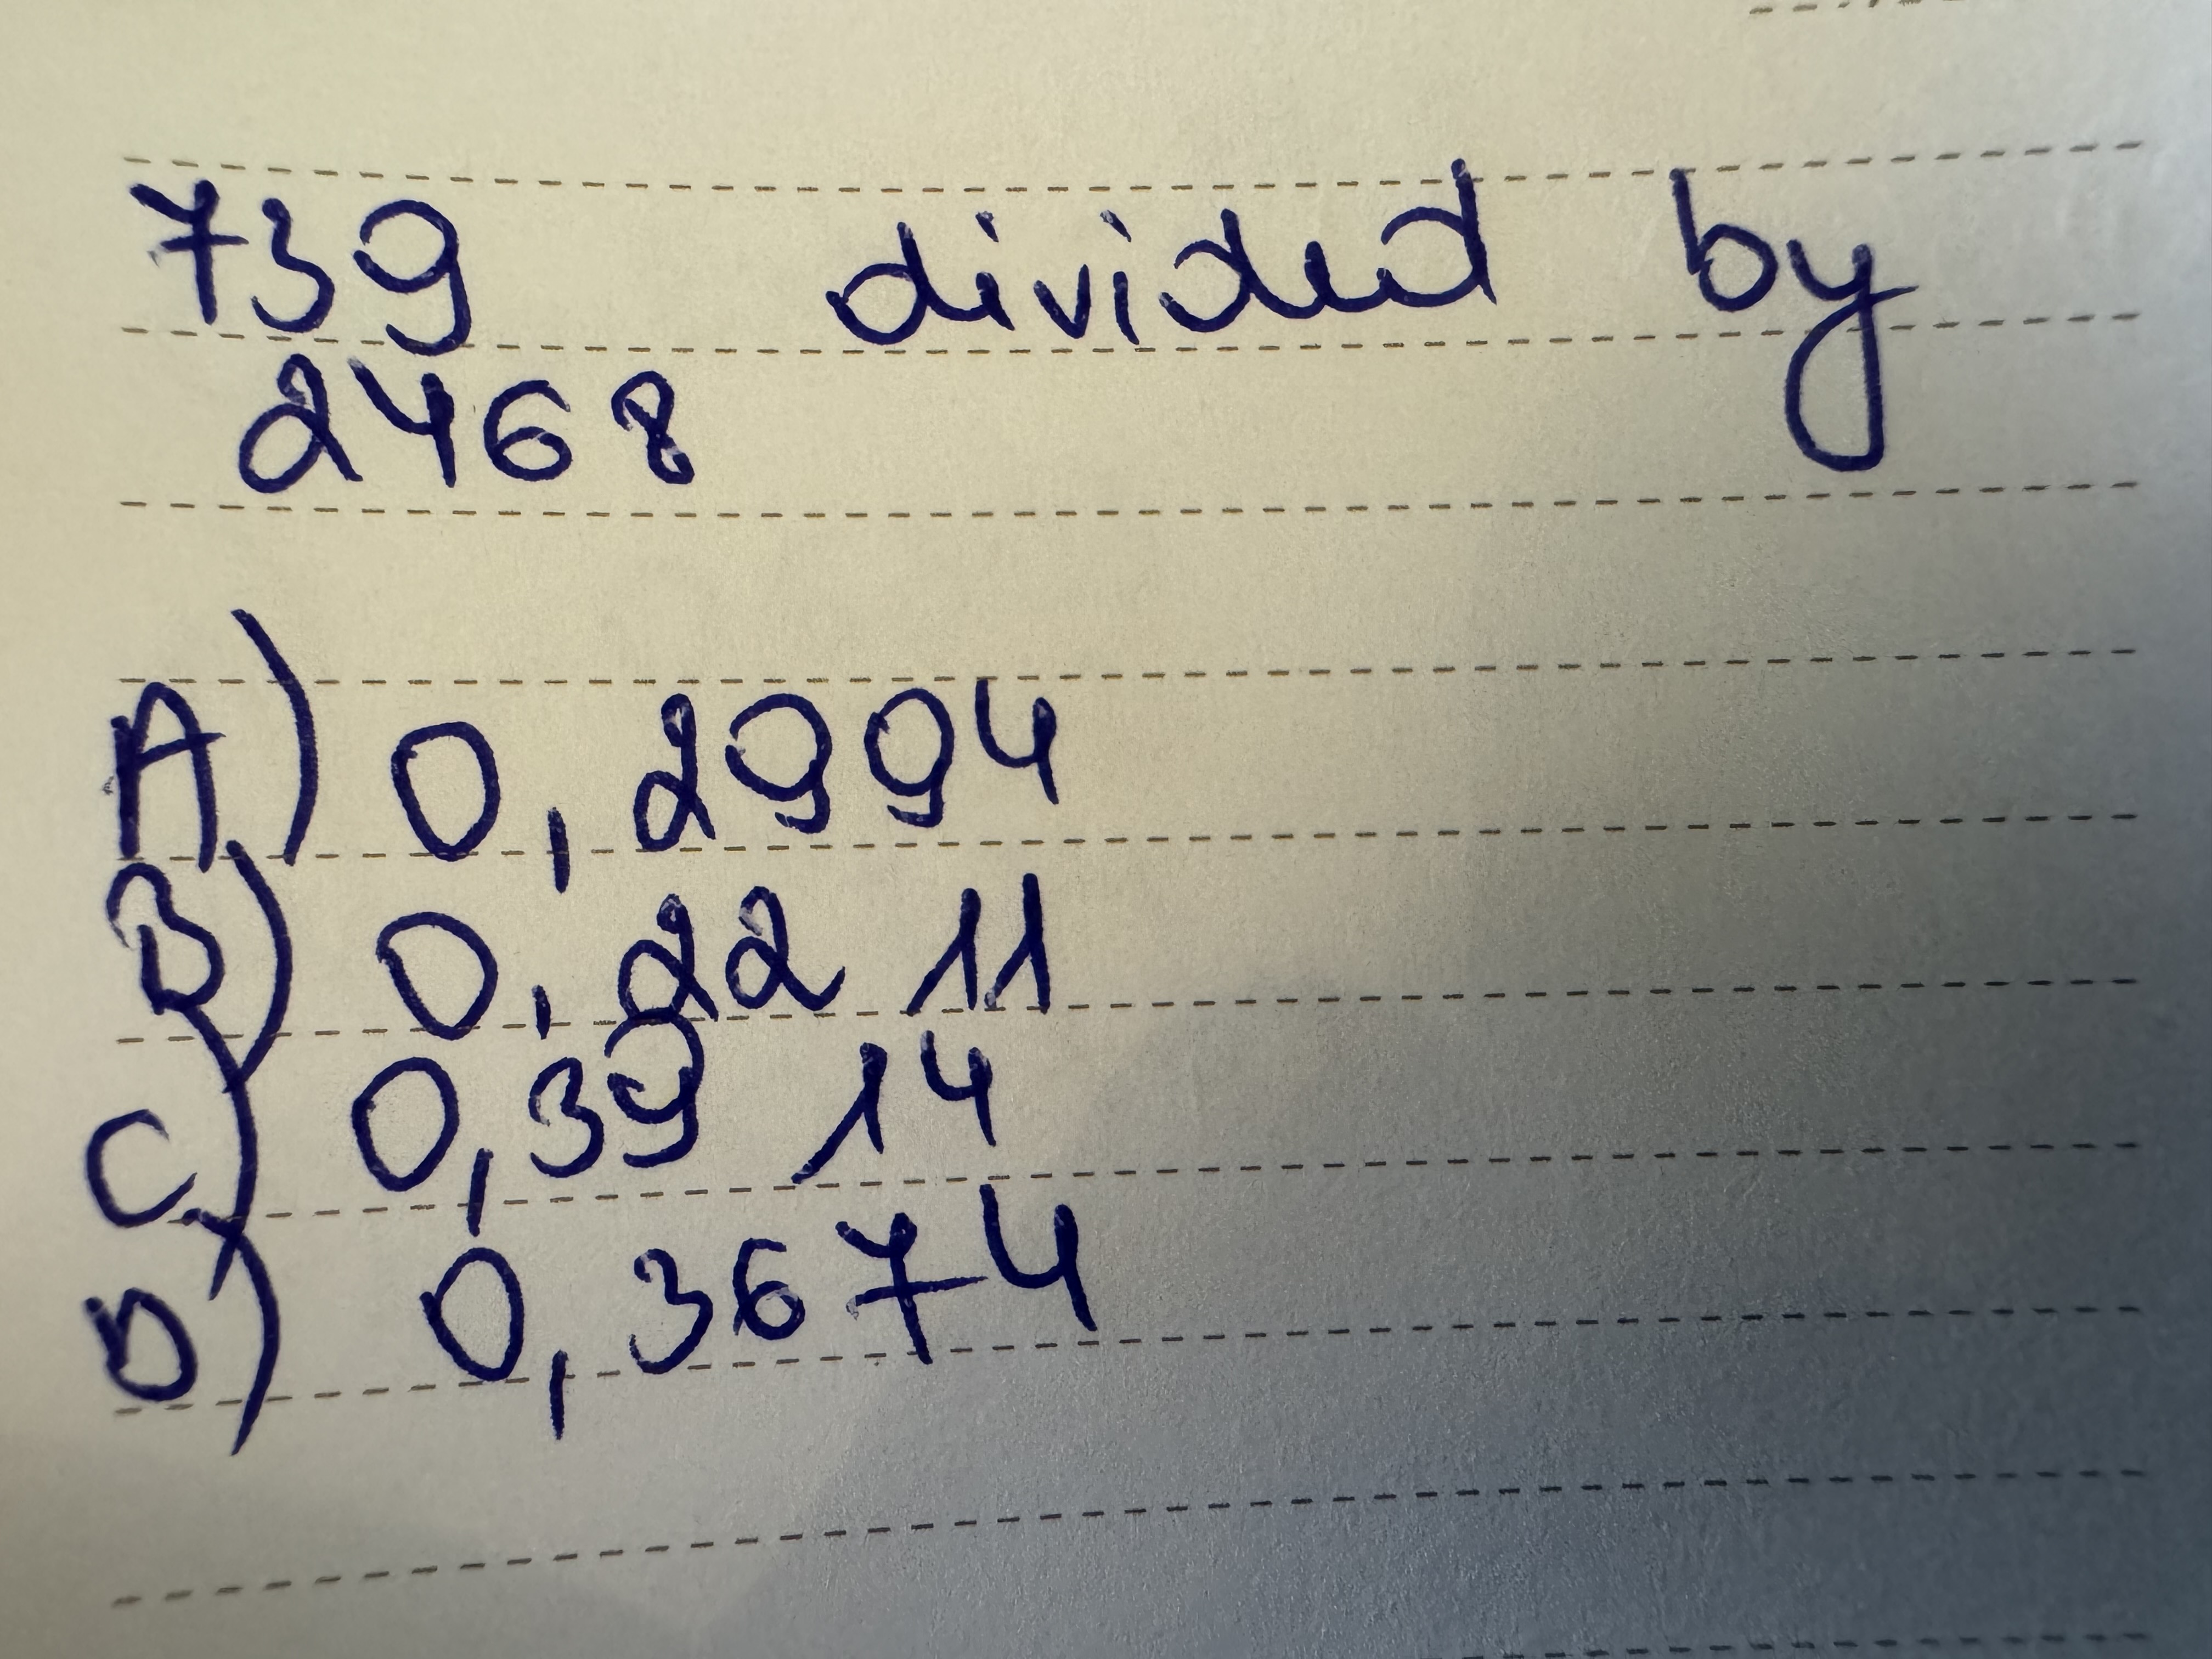 739 divided by
2468
A) 0,2994
B) 0,2211
C) 0,3914
D) 0,3674